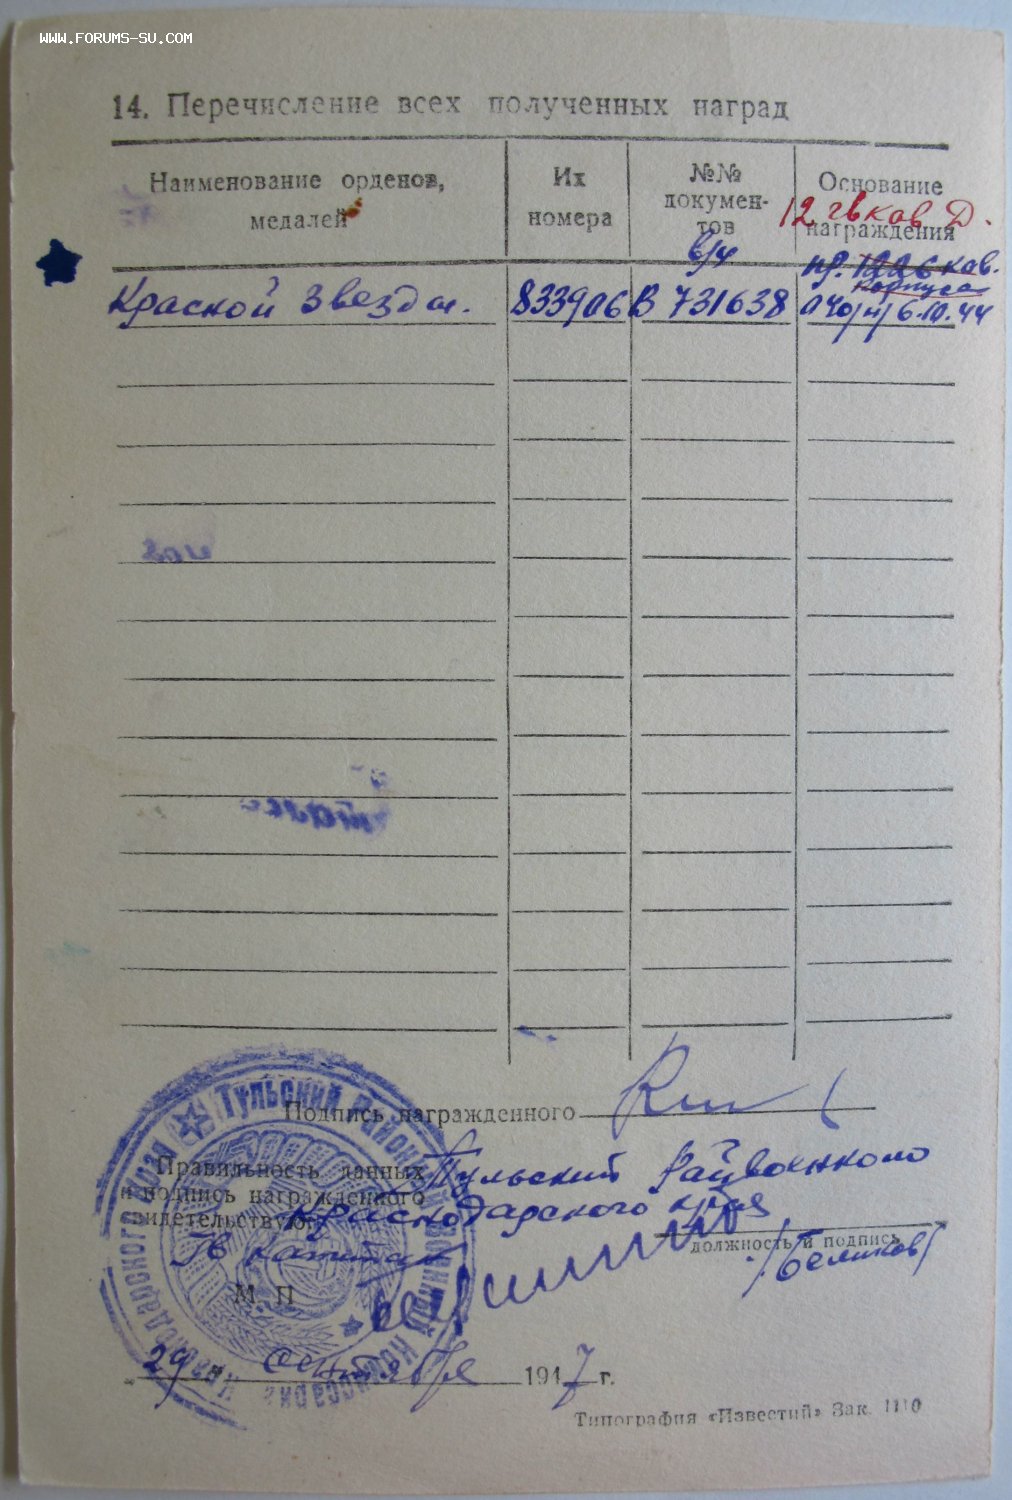 WWW.FORUMS-SU.COM
14. Перечисление всех полученных наград
Наименование орденов, медалей
Их номера
№№ документов
Основание награждения
12 гв кав Д.
б/н
пр. кав. корпуса
Красной Звезды.
833906
В 731638
040/н 6.10.44
Подпись награжденного
Правильность данных
и подпись награжденного
свидетельствую
Тульский Райвоенком
Краснодарского края
Гв капитан
/Беликов/
должность и подпись
М. П.
29 сентября 1947 г.
Типография «Известий» Зак. 1110
Тульский Районный Военный Комиссариат Краснодарского края